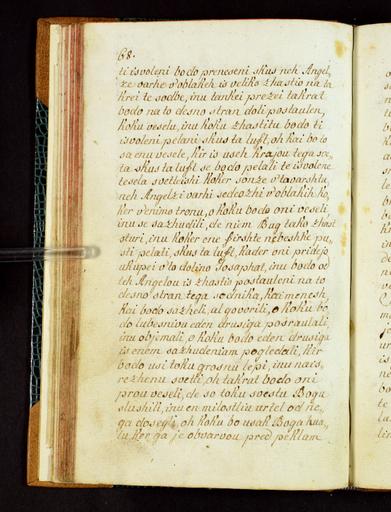 68.
ti isvoleni bodo preneseni skus neh Angel,
ze varhe v'oblakeh is veliko zhastio na ta
krei te sodbe, inu tankei prezei takrat
bodo na to desno stran doli postaulen,
koku veselu, inu koku zhastitu bodo ti
isvoleni pelani skus ta luft, oh kai bo to
sa enu vesele, kir is useh krajou tega sve,
ta skus ta luft se bodo pelali te isvolene
tesela svetleishi koker sonze v'tovarshtu
neh Angelzi varhi sedeozhi v'oblakih ko,
ker v'enimo tronu, o koku bodo oni veseli,
inu se sazhudili, de niem Bug tako zhast
sturi, inu koker ene firshte nebeshke pu,
sti pelati, skus ta luft. Kader oni pridejo
ukupei v'to dolino Josaphat, inu bodo od
teh Angelou is zhastio postauleni na to
desno stran tega sodnika, kai menesh,
kai bodo sazheli, al govorili, o koku bo,
do lubesnivu eden drusiga posraulali,
inu objimali, o koku bodo eden drusiga
is enem sazhudeniam pogledali, kir
bodo usi toku grosnu lepi, inu nais,
rezhenu svetli, oh takrat bodo oni
prou veseli, de so toku svestu Bogu
slushili, inu en milostliu urtel od ne,
ga dosegli, oh koku bo usak Boga hva,
lu ker ga je obvarvou pred peklam